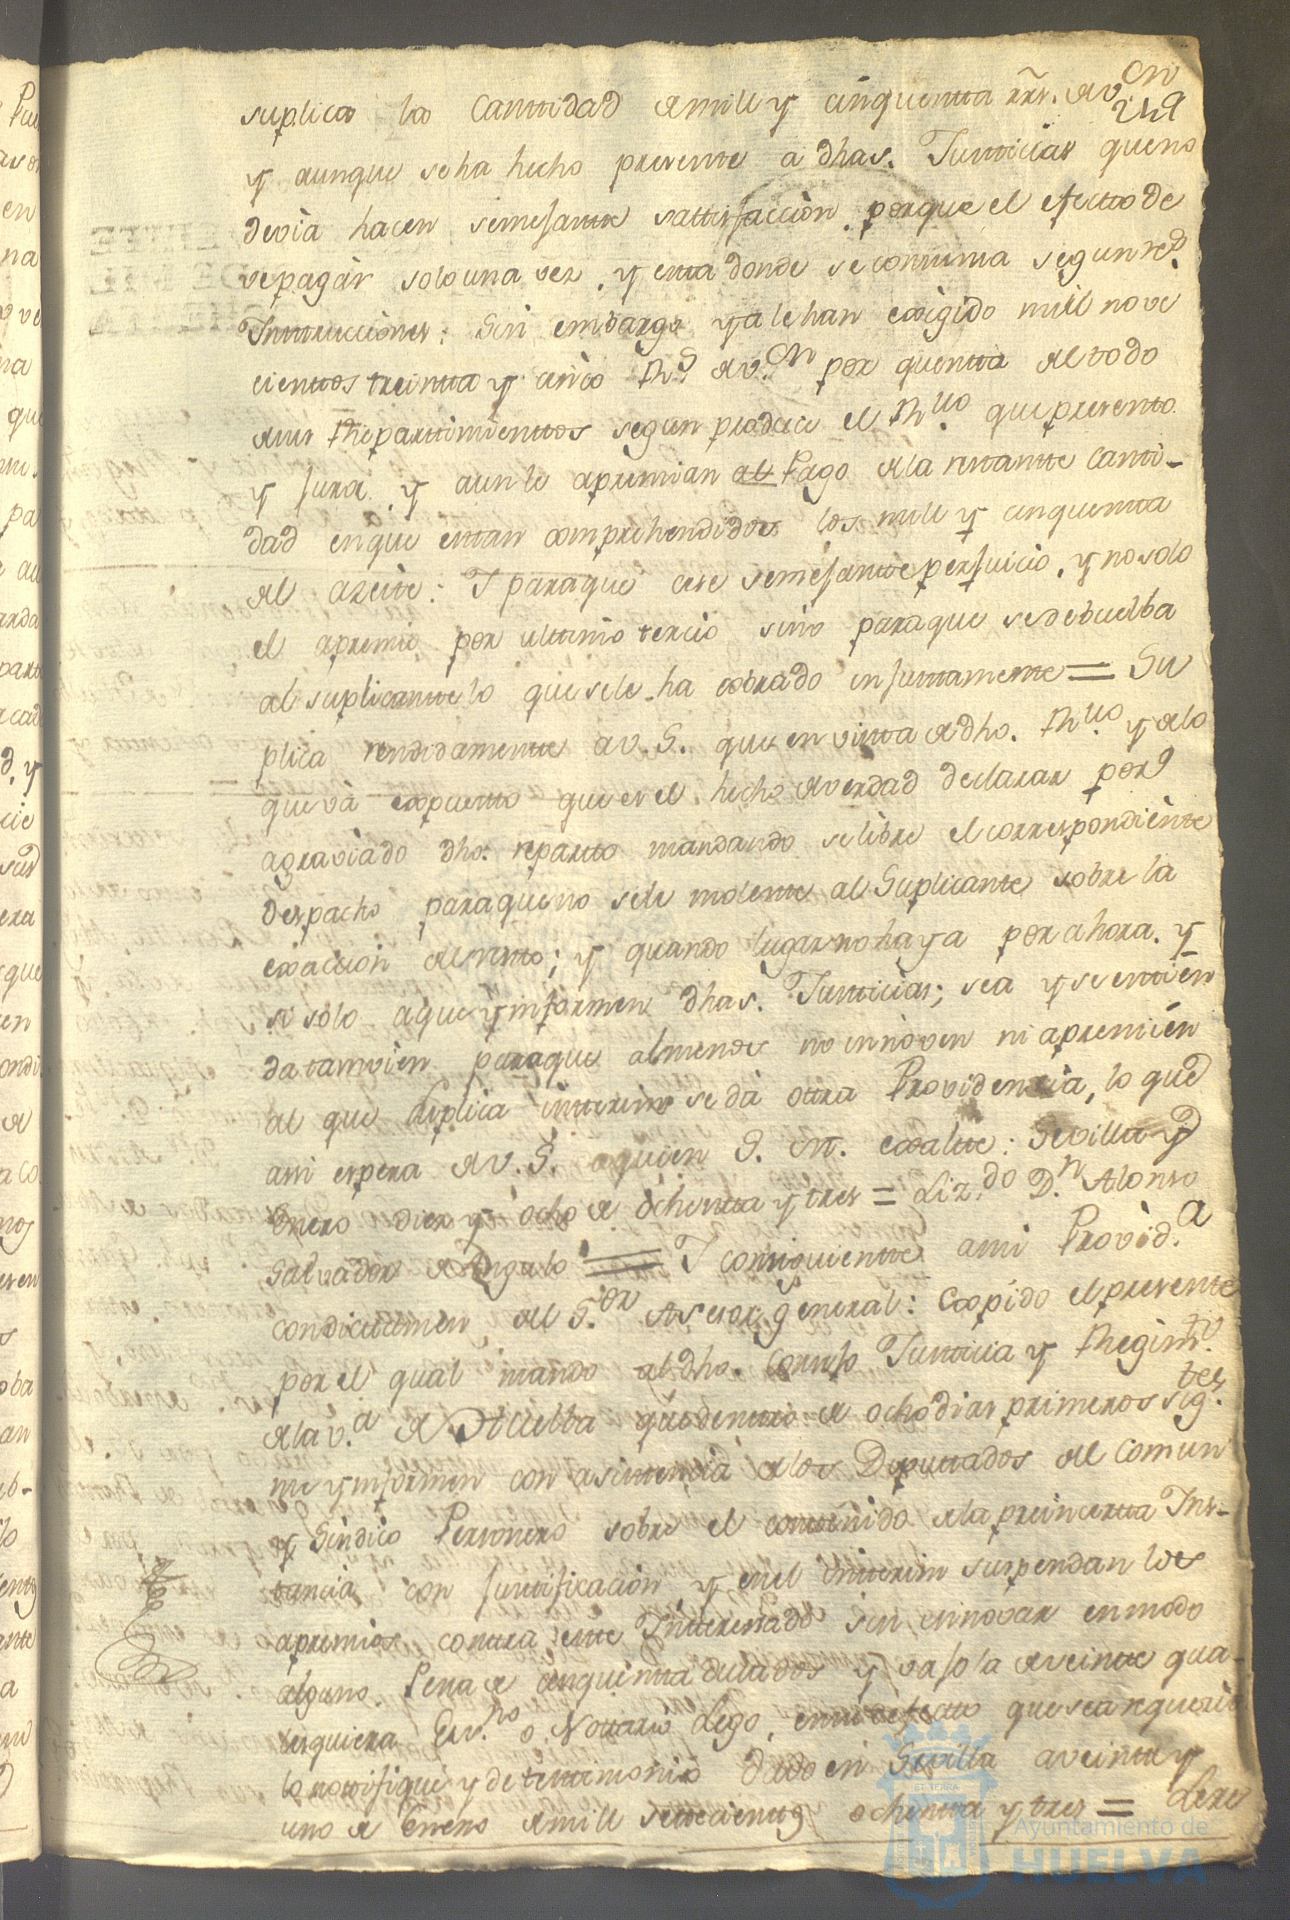 suplica la Cantidad de mill y cinquenta rrs. de v.on
219
y aunque se ha hecho presente a dhas. Justicias que no
devia hacer semejante sattisfacciòn, porque el efecto de
ve pagàr solo una vez, y esta donde se consuma segun r.s
Instrucciones: Sin embargo ya le han exigido mill nove
cientos treinta y cinco rrs. de v.on por quenta del todo
de sus Repartimientos segun produce el R.vo que presento
y Jura y aun le apremian al Pago de la restante Canti-
dad en que estan comprehendidos los mill y cinquenta
del azeite: Y para que cese semejante perjuicio, y no solo
el apremio por ultimo tercio sino para que se debuelba
al suplicante lo que se le ha cobrado injustamente = Su
plica rendidamente a V.S. que en vista de dho. R.vo y de lo
que và expuesto que es el hecho de verdad declarar por
agraviado dho. reparto mandando se libre el correspondiente
despacho para que no se le moleste al Suplicante sobre la
exacciòn del resto; y quando lugar no haya por ahora, y
si solo a que ynformen dhas. Justicias; sea y se entien
da tambien para que al menos no innoven ni apremien
al que suplica interin se dà otra Providencia, lo que
assi espera de V.S. a quien D. m. exalte: Sevilla y
Enero diez y ocho de ochenta y tres = Liz.do D.n Alonso
Salvador de Angulo = Y consiguiente a mi Provid.a
con dictamen del S.or Asesor general: Expido el presente
por el qual mando al dho. Consejo Justicia y Regim.to
de la v.a de Huelba que dentro de ocho dias primeros sig.tes
me ynformen con asistencia de los Diputados del Comun
y Sindico Personero sobre el contenido de la preinserta Ins-
tancia con justificaciòn y en el interin suspendan los
apremios contra este Interesado sin innovar en modo
alguno. Pena de cinquenta ducados y vajo la de veinte qua-
lesquiera Esc.no o Notario Lego, en su defecto que sea requerido
lo notifique y de testimonio Dado en Sevilla a veinte y
uno de Enero de mill settecientos ochenta y tres = Lere
ET TERRA
Ayuntamiento de
HUELVA